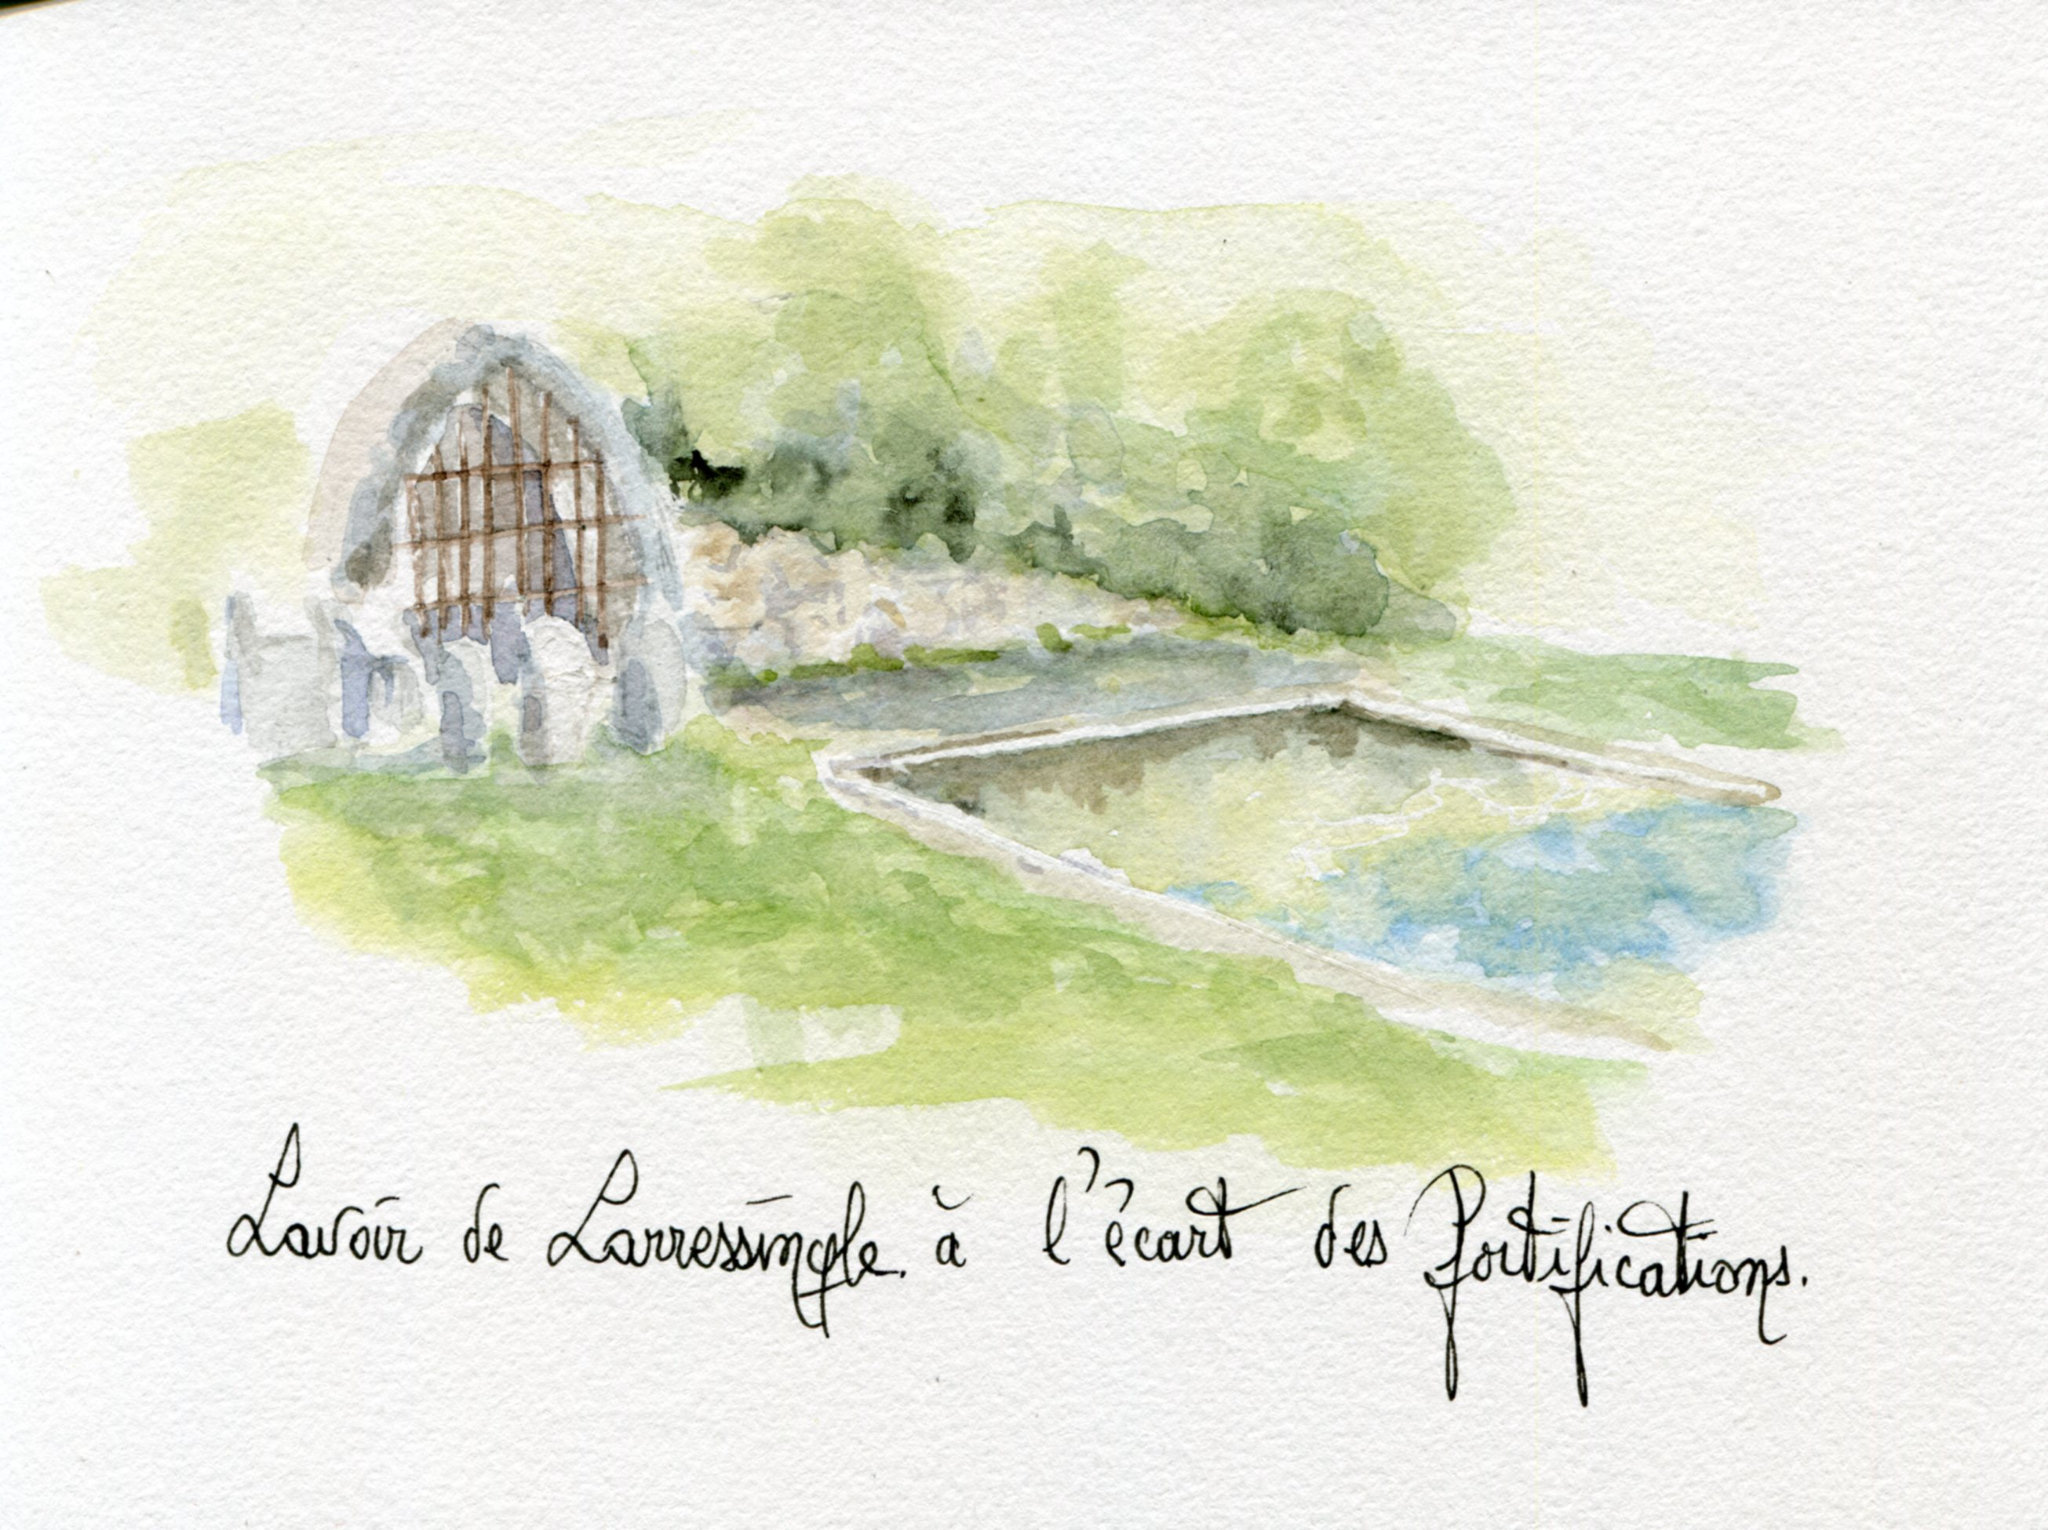 Lavoir de Larressingle. à l'écart des fortifications.